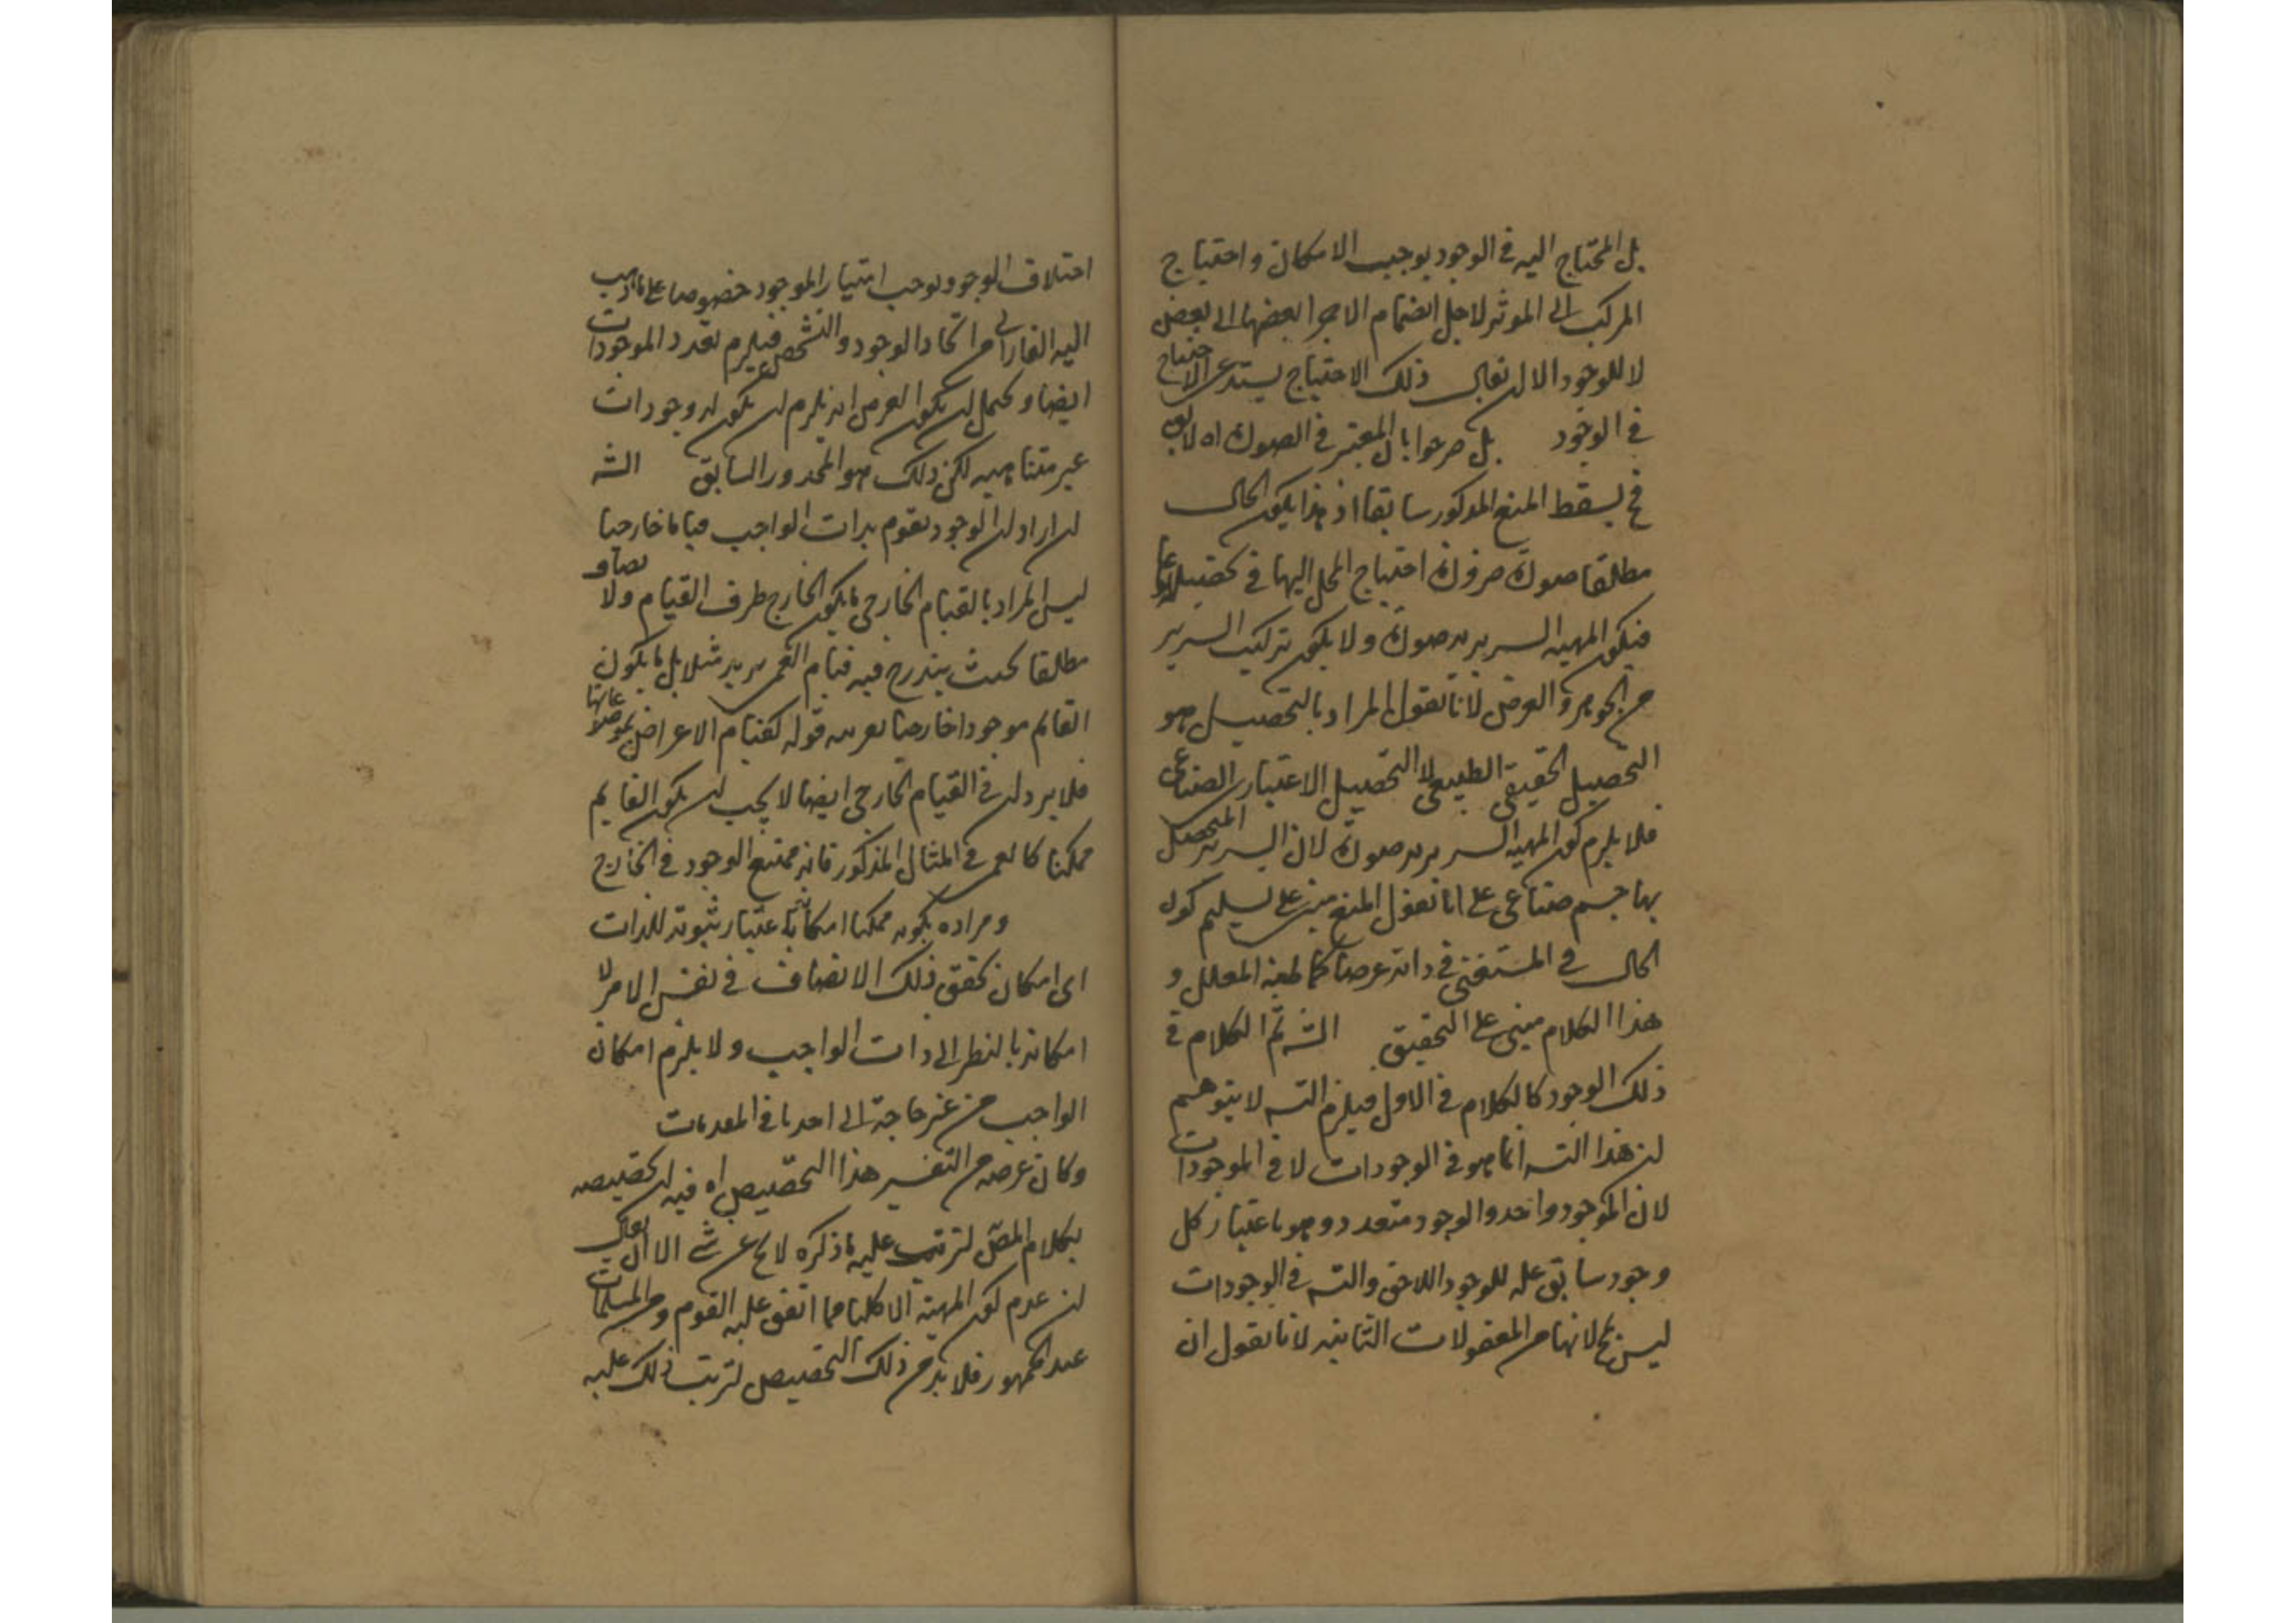 بل المحتاج اليه في الوجود يوجب الامكان واحتياج
المركب الى الموثر لاجل انضمام الاجزا بعضها الى بعض
لا للوجود الا ان يقال ذلك الاحتياج يستدعى الاحتياج
في الوجود بل صرحوا بان المعتبر في الصورة اه لا يق
فح يسقط المنع المذكور سابقا اذ هذا يكون الحال
مطلقا صورة ضرورة احتياج المحل اليها في تحصيله
فيكون الهيئة السريرية صورة ولا يكون تركيب السرير
من الجوهر والعرض لانا نقول المراد بالتحصيل هو
التحصيل الحقيقي الطبيعي لا التحصيل الاعتباري الصناعي
فلا يلزم كون الهيئة السريرية صورة لان السرير المتحصل
بها جسم صناعي على انا نقول المنع مبنى على تسليم كون
الحال في المستغنى في ذاته عرضا كما المعلل و
هذا الكلام مبنى على التحقيق الشه ثم الكلام في
ذلك الوجود كالكلام في الاول فيلزم التسه لا يتوهم
ان هذا التسه انما هو في الوجودات لا في الموجودات
لان الموجود واحد والوجود متعدد وهو باعتبار كل
وجود سابق علة للوجود اللاحق والتسه في الوجودات
ليس بمح لانها من المعقولات الثانيه لانا نقول ان
اختلاف الوجود يوجب امتياز الموجود خصوصا على ما ذهب
اليه الفارابي من اتحاد الوجود والتشخص فيلزم تعدد الموجودات
ايضا ويحتمل ان يكون الغرض انه يلزم ان يكون له وجودات
غير متناهيه لكن ذلك هو المحذور السابق الشه
ان اراد ان الوجود يقوم بذات الواجب قياما خارجيا
ليس المراد بالقيام الخارجي ما يكون الخارج ظرف القيام ولا
مطلقا بحيث يندرج فيه قيام العمى بزيد مثلا بل ما يكون
القائم موجودا خارجيا بقرينة قوله كقيام الاعراض بموضوعاتها
فلا يرد ان في القيام الخارجي ايضا لا يجب ان يكون القايم
ممكنا كالعمى في المثال المذكور فانه ممتنع الوجود في الخارج
ومراده بكونه ممكنا امكانه باعتبار ثبوته للذات
اى امكان تحقق ذلك الاتصاف في نفس الامر لا
امكانه بالنظر الى ذات الواجب ولا يلزم امكان
الواجب من غير حاجة الى احد ما في المقدمات
وكان غرضه من التفسير هذا التخصيص اه فيه ان تخصيصه
بكلام المص لترتب عليه ما ذكره لا يخ عن شى الا ان يقال
ان عدم كون المهية الا كليا مما اتفق عليه القوم ومن المسلمات
عند الجمهور فلا بد من ذلك التخصيص لترتب ذلك عليه